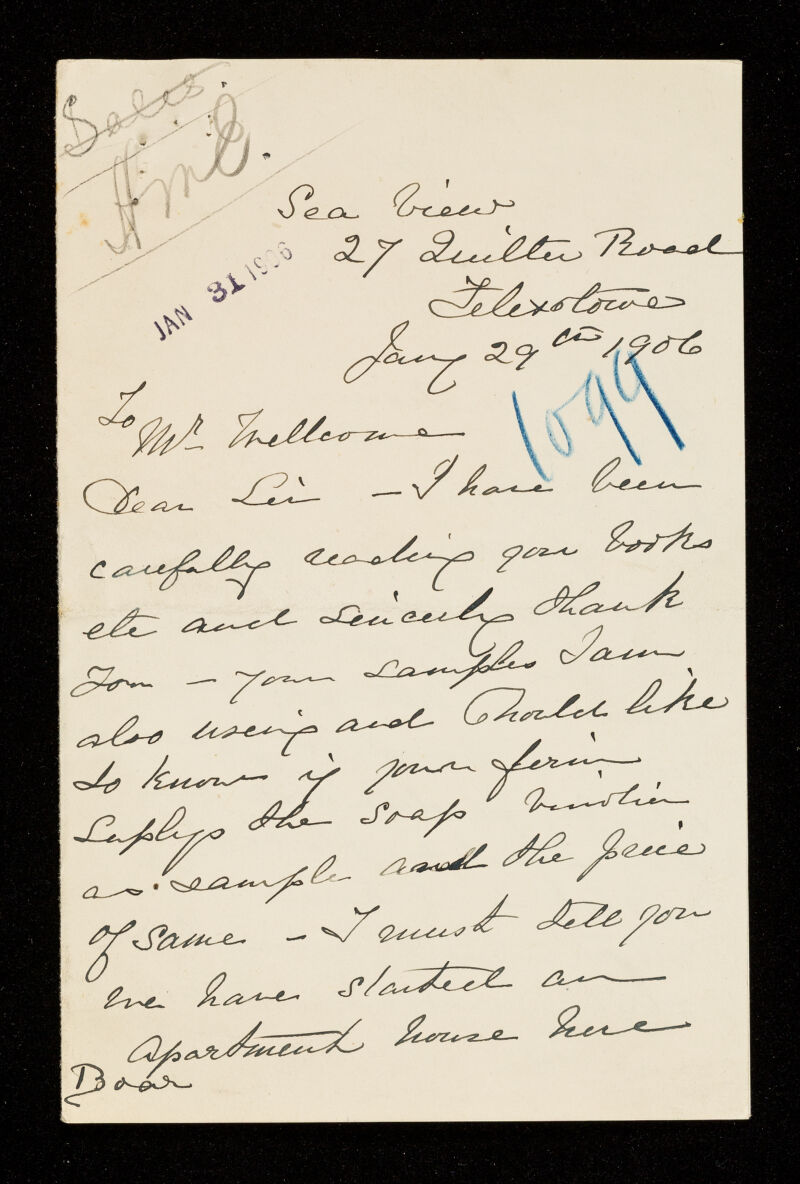 Sales
H.M.C.
JAN 31 1906
Sea View
27 Quilter Road
Felexstowe
Jany 29th 1906
1099
To
Mr Wellcome
Dear Sir - I have been
carefully reading your books
etc and sincerely thank
you - your samples I am
also using and should like
to know if your firm
suplys the soap vinolia
as sample and the price
of same - I must tell you
we have started an
apartment house here
Boar